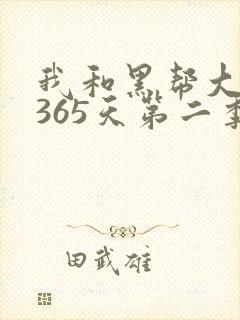 我和黑帮大
365天第二季
田武雄